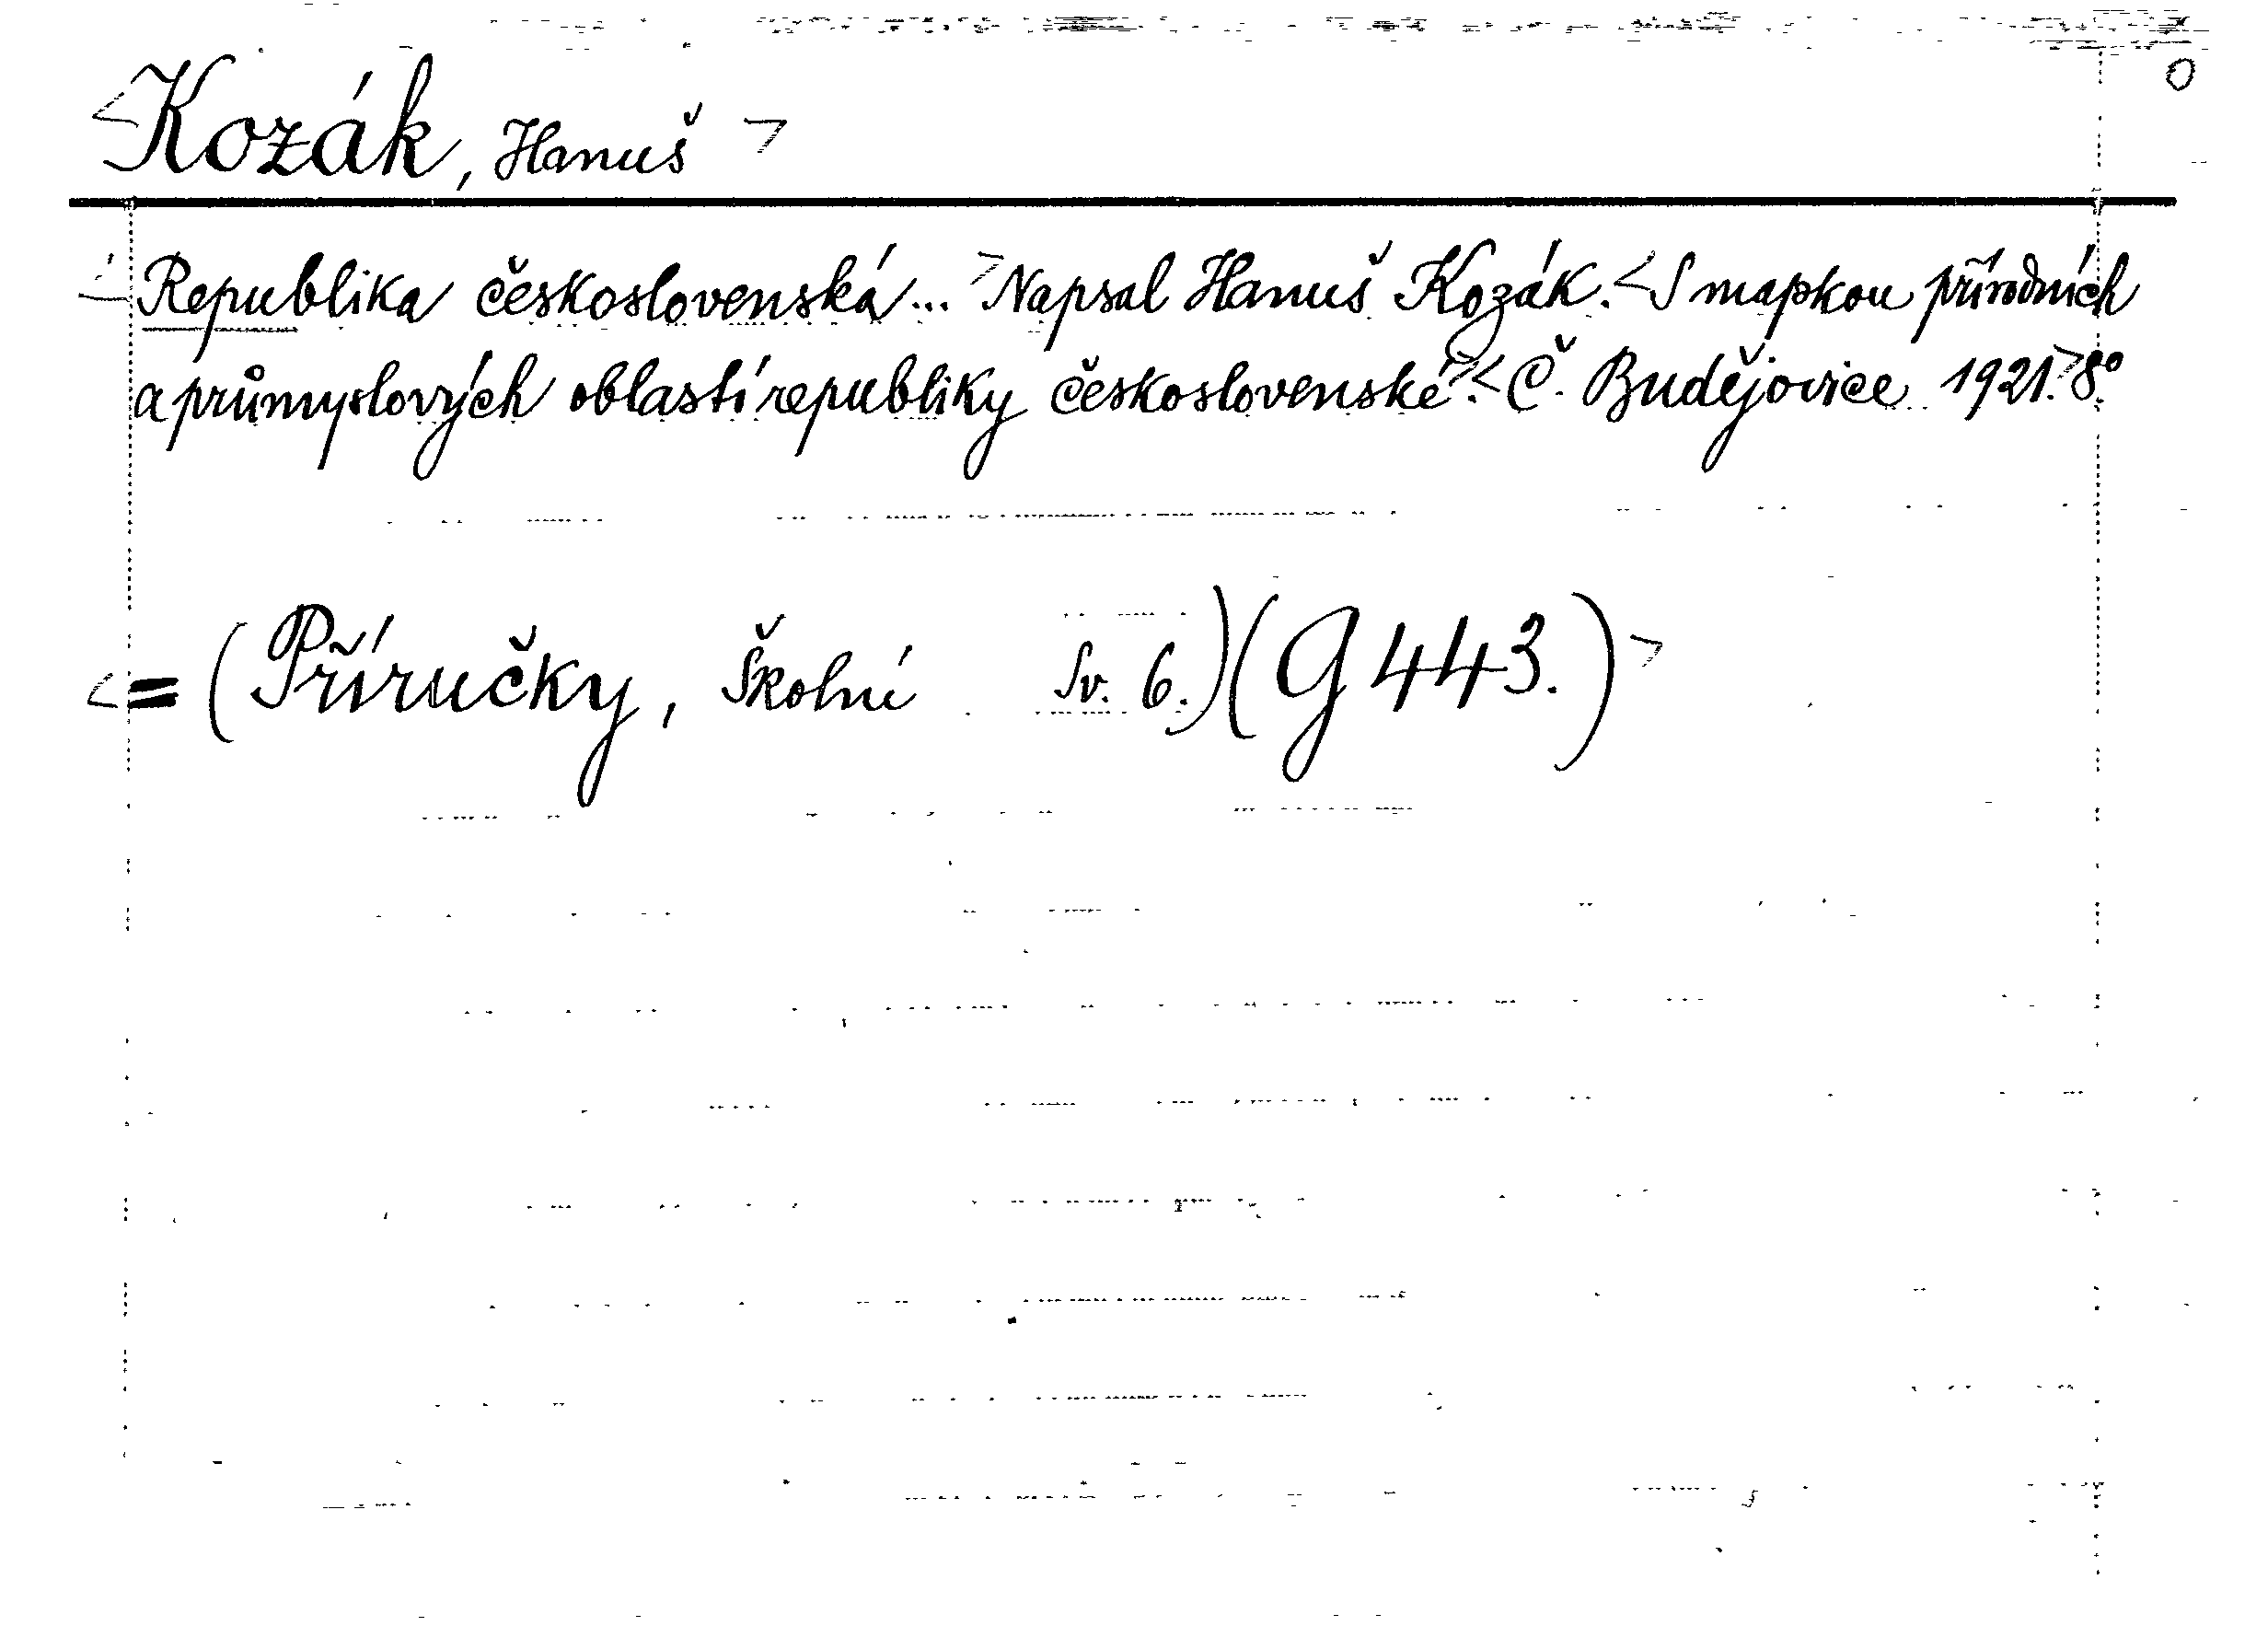 <Kozák, Hanuš> 0
<Republika československá... >Napsal Hanuš Kozák. <S mapkou přírodních
a průmyslových oblastí republiky československé>. <Č. Budějovice 1921.> 8°.
<= (Příručky, Školní Sv. 6.) (G 443.)>